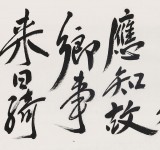 應知故
鄉事
來日綺